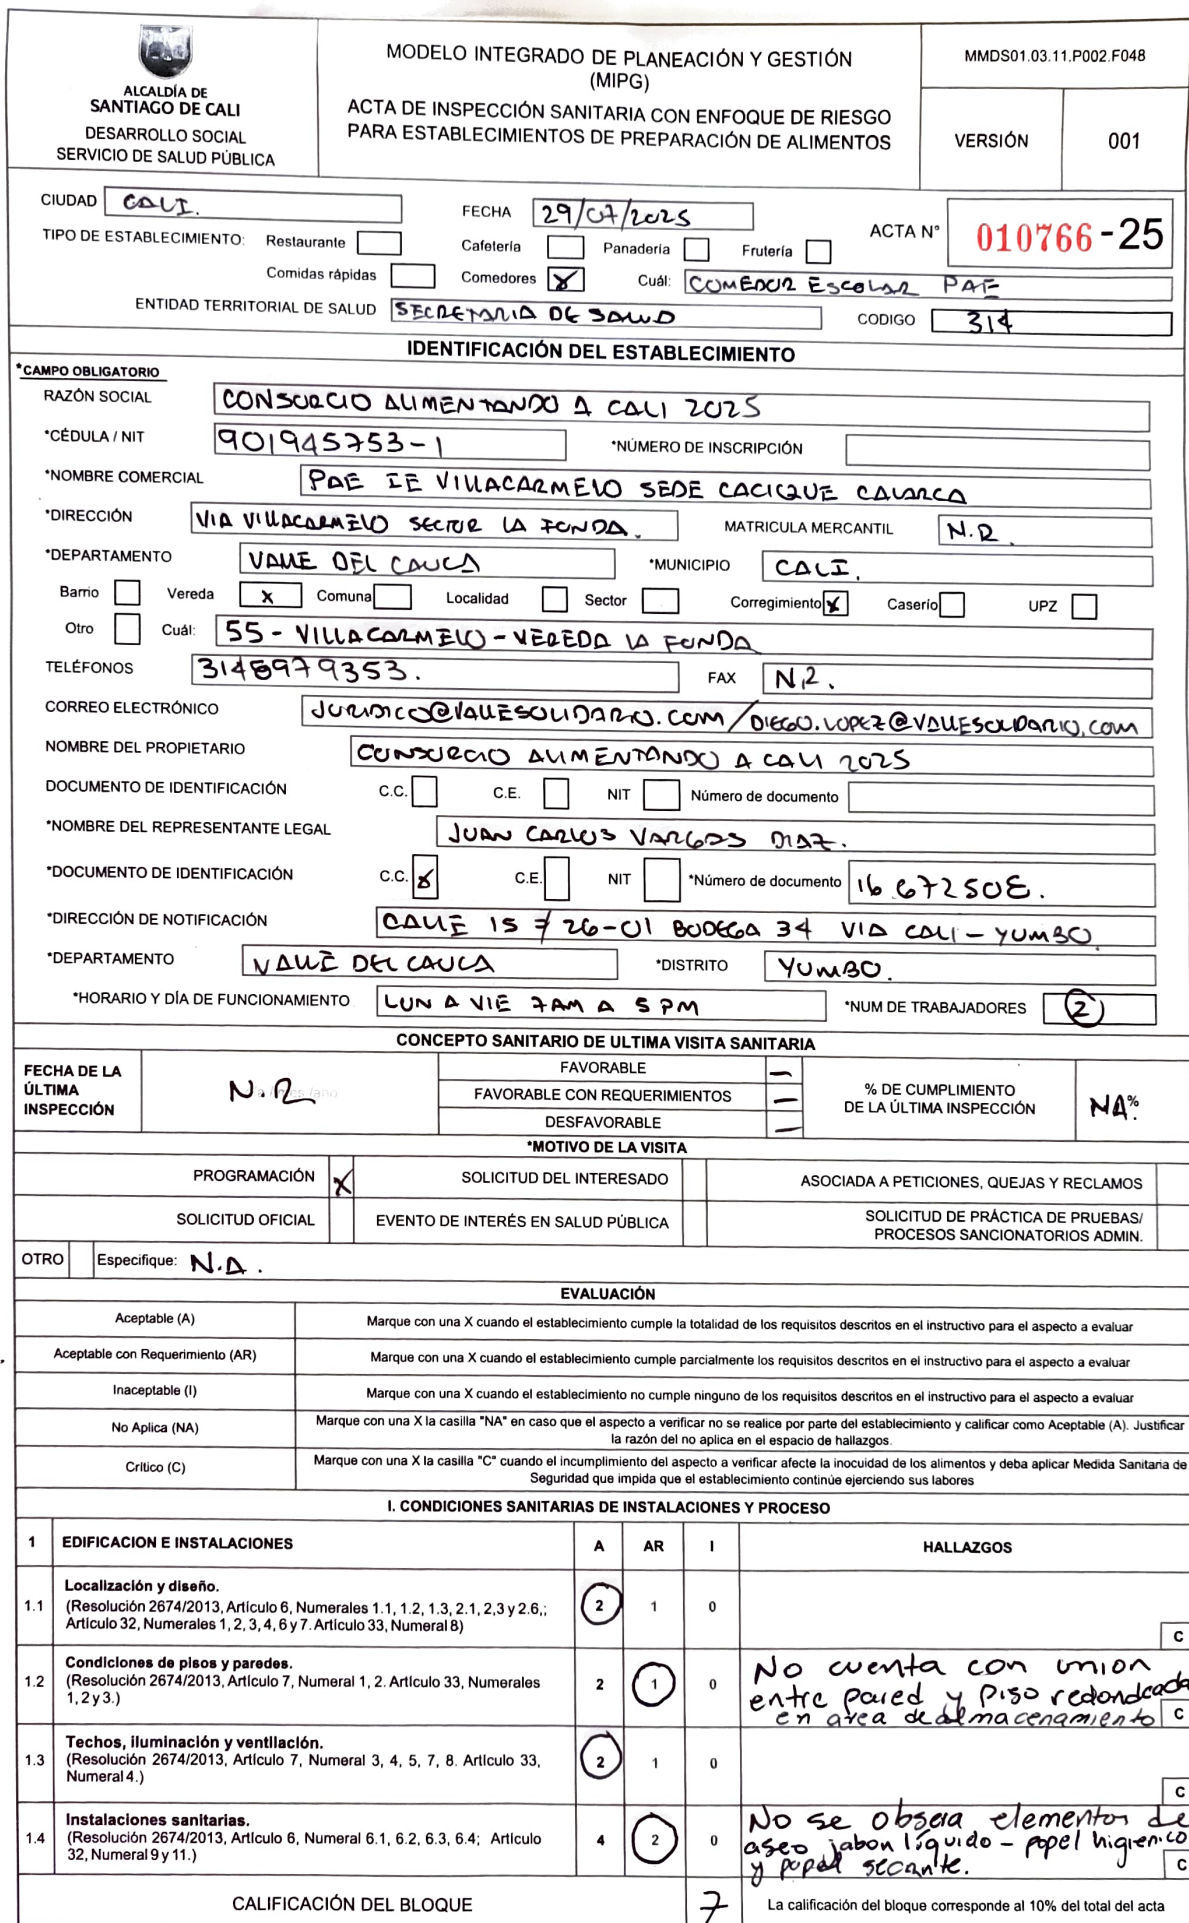 ALCALDÍA DE
SANTIAGO DE CALI
DESARROLLO SOCIAL
SERVICIO DE SALUD PÚBLICA
MODELO INTEGRADO DE PLANEACIÓN Y GESTIÓN
(MIPG)
ACTA DE INSPECCIÓN SANITARIA CON ENFOQUE DE RIESGO
PARA ESTABLECIMIENTOS DE PREPARACIÓN DE ALIMENTOS
MMDS01.03.11.P002.F048
VERSIÓN 001
CIUDAD CALI.
FECHA 29/07/2025
ACTA N° 010766-25
TIPO DE ESTABLECIMIENTO: Restaurante Cafetería Panadería Frutería
Comidas rápidas Comedores X Cuál: COMEDOR ESCOLAR PAE
ENTIDAD TERRITORIAL DE SALUD SECRETARIA DE SALUD CODIGO 314
IDENTIFICACIÓN DEL ESTABLECIMIENTO
*CAMPO OBLIGATORIO
RAZÓN SOCIAL CONSORCIO ALIMENTANDO A CALI 2025
*CÉDULA / NIT 901945753-1 *NÚMERO DE INSCRIPCIÓN
*NOMBRE COMERCIAL PAE IE VILLACARMELO SEDE CACIQUE CALARCA
*DIRECCIÓN VIA VILLACARMELO SECTOR LA FONDA. MATRICULA MERCANTIL N.R.
*DEPARTAMENTO VALLE DEL CAUCA *MUNICIPIO CALI.
Barrio Vereda X Comuna Localidad Sector Corregimiento X Caserío UPZ
Otro Cuál: 55 - VILLACARMELO - VEREDA LA FONDA
TELÉFONOS 3148979353. FAX N.R.
CORREO ELECTRÓNICO JURIDICO@VALLESOLIDARIO.COM/DIEGO.LOPEZ@VALLESOLIDARIO.COM
NOMBRE DEL PROPIETARIO CONSORCIO ALIMENTANDO A CALI 2025
DOCUMENTO DE IDENTIFICACIÓN C.C. C.E. NIT Número de documento
*NOMBRE DEL REPRESENTANTE LEGAL JUAN CARLOS VARGAS DIAZ.
*DOCUMENTO DE IDENTIFICACIÓN C.C. X C.E. NIT *Número de documento 16 672508.
*DIRECCIÓN DE NOTIFICACIÓN CALLE 15 # 26-01 BODEGA 34 VIA CALI - YUMBO.
*DEPARTAMENTO VALLE DEL CAUCA *DISTRITO YUMBO.
*HORARIO Y DÍA DE FUNCIONAMIENTO LUN A VIE 7AM A 5 PM *NUM DE TRABAJADORES 2
CONCEPTO SANITARIO DE ULTIMA VISITA SANITARIA
FECHA DE LA
ÚLTIMA
INSPECCIÓN
N.R
FAVORABLE —
FAVORABLE CON REQUERIMIENTOS —
DESFAVORABLE —
% DE CUMPLIMIENTO
DE LA ÚLTIMA INSPECCIÓN
NA%
*MOTIVO DE LA VISITA
PROGRAMACIÓN X SOLICITUD DEL INTERESADO ASOCIADA A PETICIONES, QUEJAS Y RECLAMOS
SOLICITUD OFICIAL EVENTO DE INTERÉS EN SALUD PÚBLICA SOLICITUD DE PRÁCTICA DE PRUEBAS/
PROCESOS SANCIONATORIOS ADMIN.
OTRO Especifique: N.A.
EVALUACIÓN
Aceptable (A) Marque con una X cuando el establecimiento cumple la totalidad de los requisitos descritos en el instructivo para el aspecto a evaluar
Aceptable con Requerimiento (AR) Marque con una X cuando el establecimiento cumple parcialmente los requisitos descritos en el instructivo para el aspecto a evaluar
Inaceptable (I) Marque con una X cuando el establecimiento no cumple ninguno de los requisitos descritos en el instructivo para el aspecto a evaluar
No Aplica (NA) Marque con una X la casilla "NA" en caso que el aspecto a verificar no se realice por parte del establecimiento y calificar como Aceptable (A). Justificar
la razón del no aplica en el espacio de hallazgos.
Crítico (C) Marque con una X la casilla "C" cuando el incumplimiento del aspecto a verificar afecte la inocuidad de los alimentos y deba aplicar Medida Sanitaria de
Seguridad que impida que el establecimiento continúe ejerciendo sus labores
I. CONDICIONES SANITARIAS DE INSTALACIONES Y PROCESO
1 EDIFICACION E INSTALACIONES A AR I HALLAZGOS
1.1 Localización y diseño.
(Resolución 2674/2013, Artículo 6, Numerales 1.1, 1.2, 1.3, 2.1, 2,3 y 2.6,;
Artículo 32, Numerales 1, 2, 3, 4, 6 y 7. Artículo 33, Numeral 8)
2 1 0
C
1.2 Condiciones de pisos y paredes.
(Resolución 2674/2013, Artículo 7, Numeral 1, 2. Artículo 33, Numerales
1, 2 y 3.)
2 1 0
No cuenta con union
entre pared y piso redondeada
en area de almacenamiento
C
1.3 Techos, iluminación y ventilación.
(Resolución 2674/2013, Artículo 7, Numeral 3, 4, 5, 7, 8. Artículo 33,
Numeral 4.)
2 1 0
C
1.4 Instalaciones sanitarias.
(Resolución 2674/2013, Artículo 6, Numeral 6.1, 6.2, 6.3, 6.4; Artículo
32, Numeral 9 y 11.)
4 2 0
No se obseva elementos de
aseo jabon líquido - papel higienico
y papel secante.
C
CALIFICACIÓN DEL BLOQUE 7 La calificación del bloque corresponde al 10% del total del acta